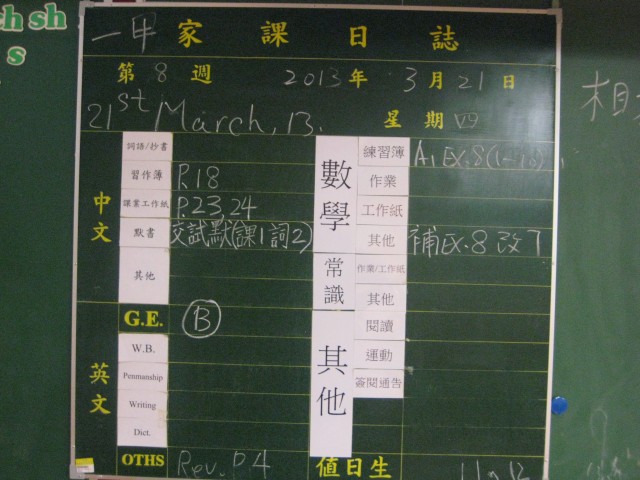 ch sh
s
一甲 家課日誌
第 8 週 2013 年 3 月 21 日
21st March, 13. 星期 四
中文
詞語/抄書
習作簿 P.18
課業工作紙 P.23,24
默書 交試默(課1詞2)
其他
英文
G.E. B
W.B.
Penmanship
Writing
Dict.
OTHS Rev. P.4
數學
練習簿 A, EX.8(1-10),
作業
工作紙
其他 補EX.8 改7
常識
作業/工作紙
其他
其他
閱讀
運動
簽閱通告
值日生
相